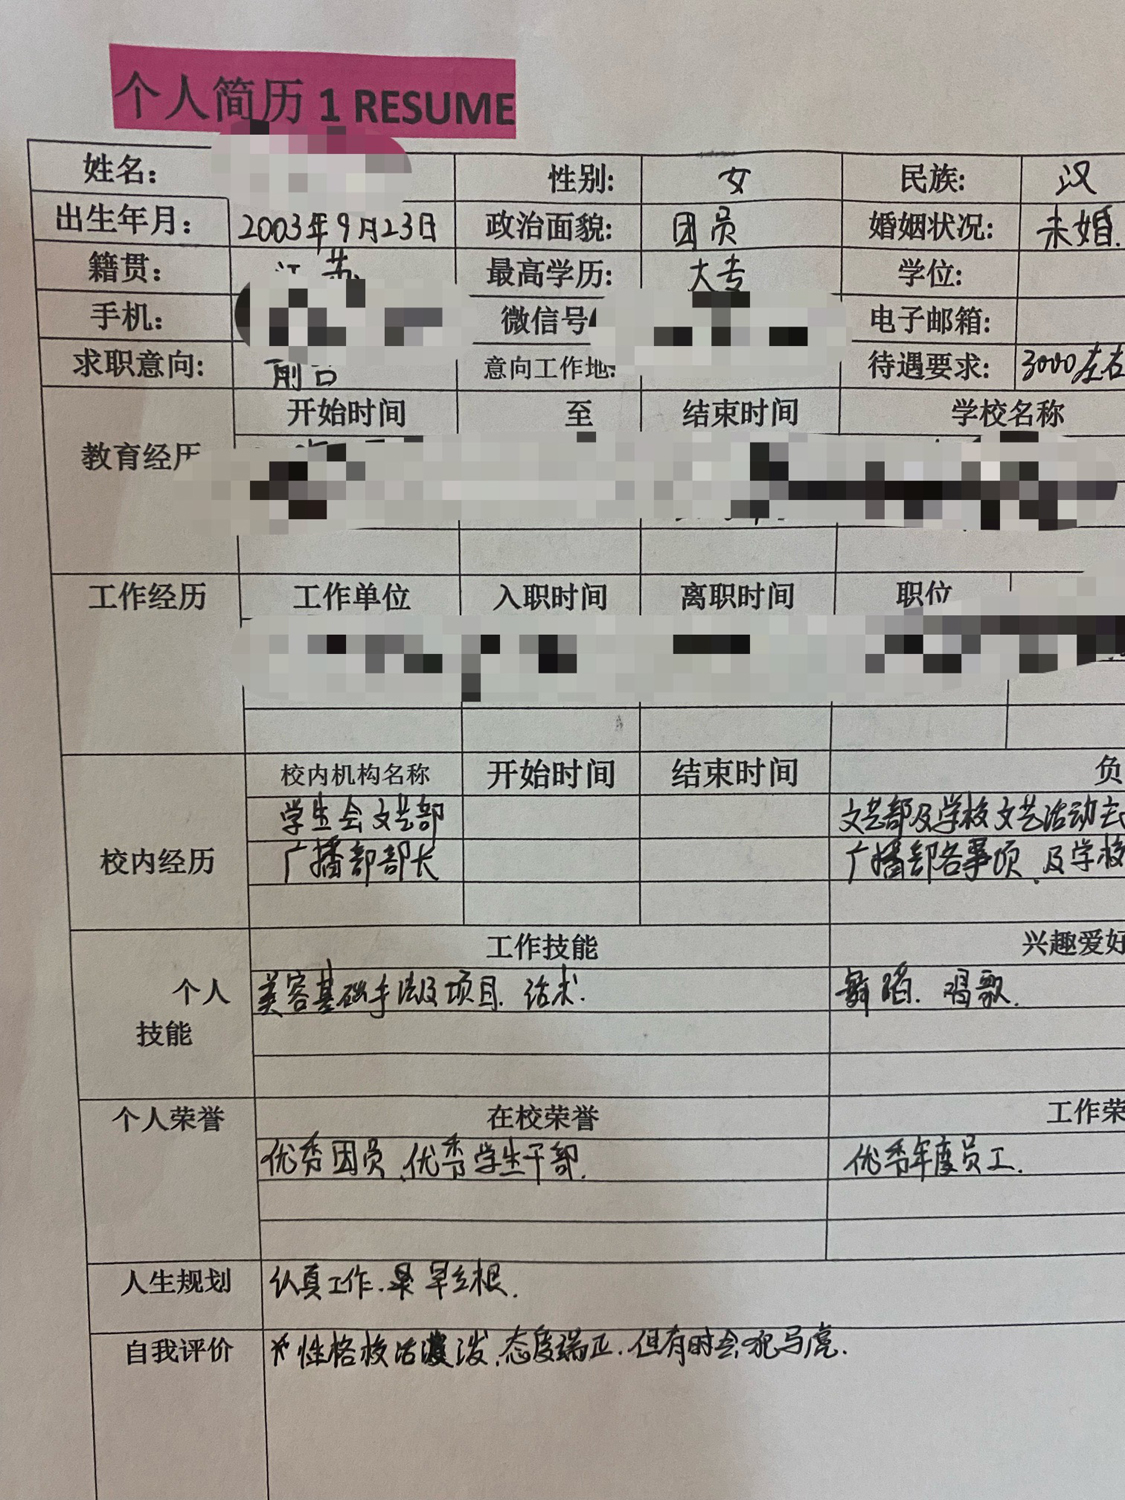 个人简历 1 RESUME
姓名： 性别: 女 民族: 汉
出生年月： 2003年9月23日 政治面貌: 团员 婚姻状况: 未婚.
籍贯： 江苏 最高学历: 大专 学位:
手机： 微信号 电子邮箱:
求职意向: 前台 意向工作地: 待遇要求: 3000左右
开始时间 至 结束时间 学校名称
教育经历
工作经历 工作单位 入职时间 离职时间 职位
校内机构名称 开始时间 结束时间 负
学生会文艺部 文艺部及学校文艺活动
校内经历 广播部部长 广播部各事项、及学校
工作技能 兴趣爱好
个人 美容基础手法及项目、话术. 舞蹈、唱歌.
技能
个人荣誉 在校荣誉 工作荣
优秀团员、优秀学生干部. 优秀年度员工.
人生规划 认真工作、早立根.
自我评价 性格校活泼、态度端正、但有时会犯马虎.